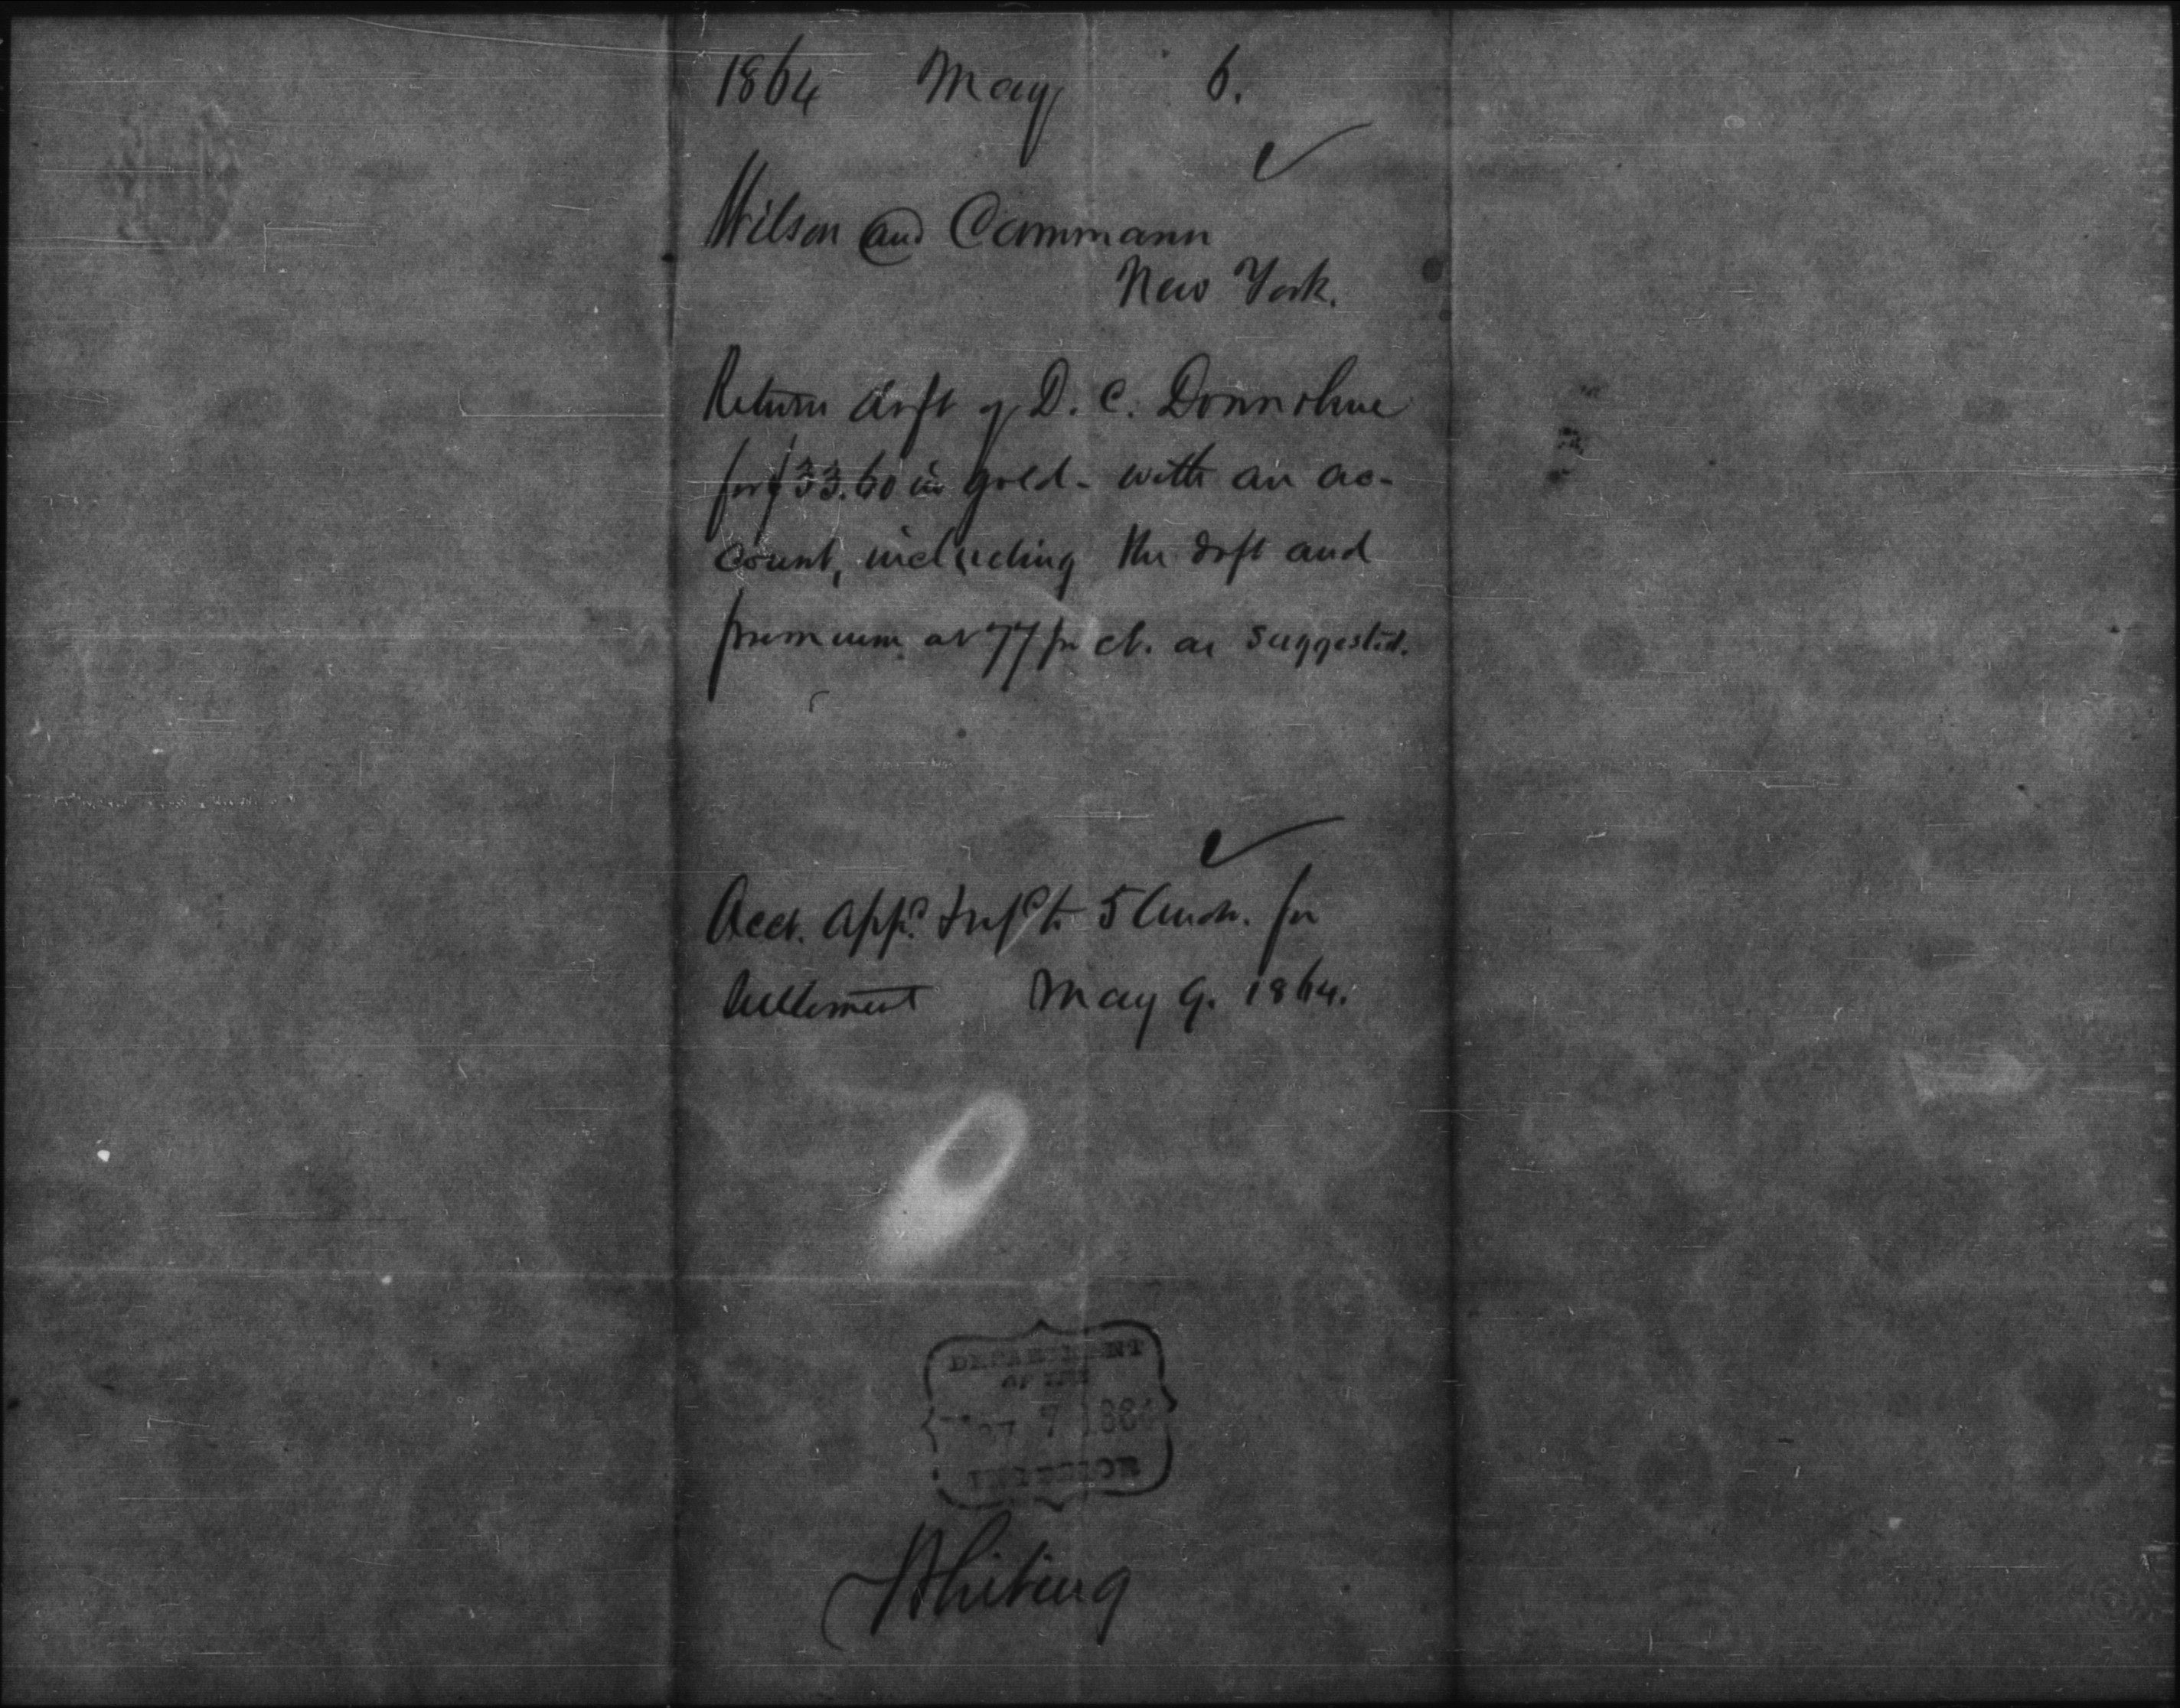 1864 May 6.
Wilson and Cammann
New York.
Return drft of D. C. Donnohue
for $33.60 in gold - with an ac-
count, including the drft and
premium at 77 pr ct. as suggested.
Acct. appd. &  to 5 Audr. for
Settlement May 9. 1864.
DEPARTMENT
OF THE
May 7 1864
INTERIOR
Whiting